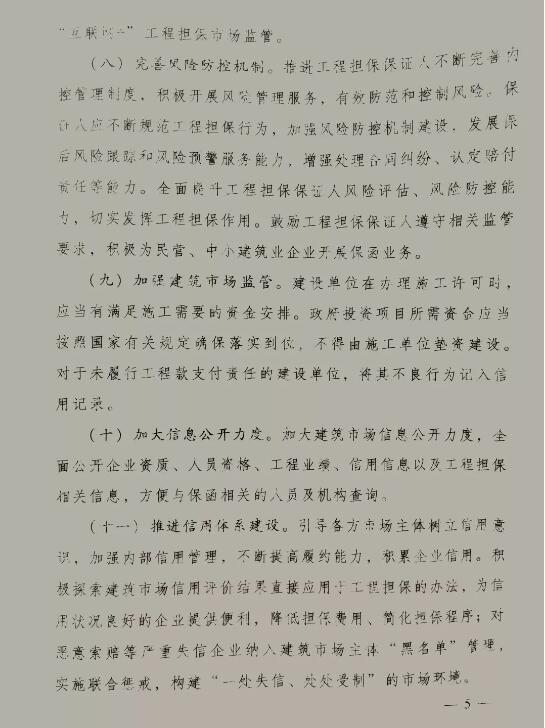 “互联网+”工程担保市场监管。
（八）完善风险防控机制。推进工程担保保证人不断完善内
控管理制度，积极开展风险管理服务，有效防范和控制风险。保
证人应不断规范工程担保行为，加强风险防控机制建设，发展保
后风险跟踪和风险预警服务能力，增强处理合同纠纷、认定赔付
责任等能力。全面提升工程担保保证人风险评估、风险防控能
力，切实发挥工程担保作用。鼓励工程担保保证人遵守相关监管
要求，积极为民营、中小建筑业企业开展保函业务。
（九）加强建筑市场监管。建设单位在办理施工许可时，
应当有满足施工需要的资金安排。政府投资项目所需资金应当
按照国家有关规定确保落实到位，不得由施工单位垫资建设。
对于未履行工程款支付责任的建设单位，将其不良行为记入信
用记录。
（十）加大信息公开力度。加大建筑市场信息公开力度，全
面公开企业资质、人员资格、工程业绩、信用信息以及工程担保
相关信息，方便与保函相关的人员及机构查询。
（十一）推进信用体系建设。引导各方市场主体树立信用意
识，加强内部信用管理，不断提高履约能力，积累企业信用。积
极探索建筑市场信用评价结果直接应用于工程担保的办法，为信
用状况良好的企业提供便利，降低担保费用、简化担保程序；对
恶意索赔等严重失信企业纳入建筑市场主体“黑名单”管理，
实施联合惩戒，构建“一处失信、处处受制”的市场环境。
— 5 —